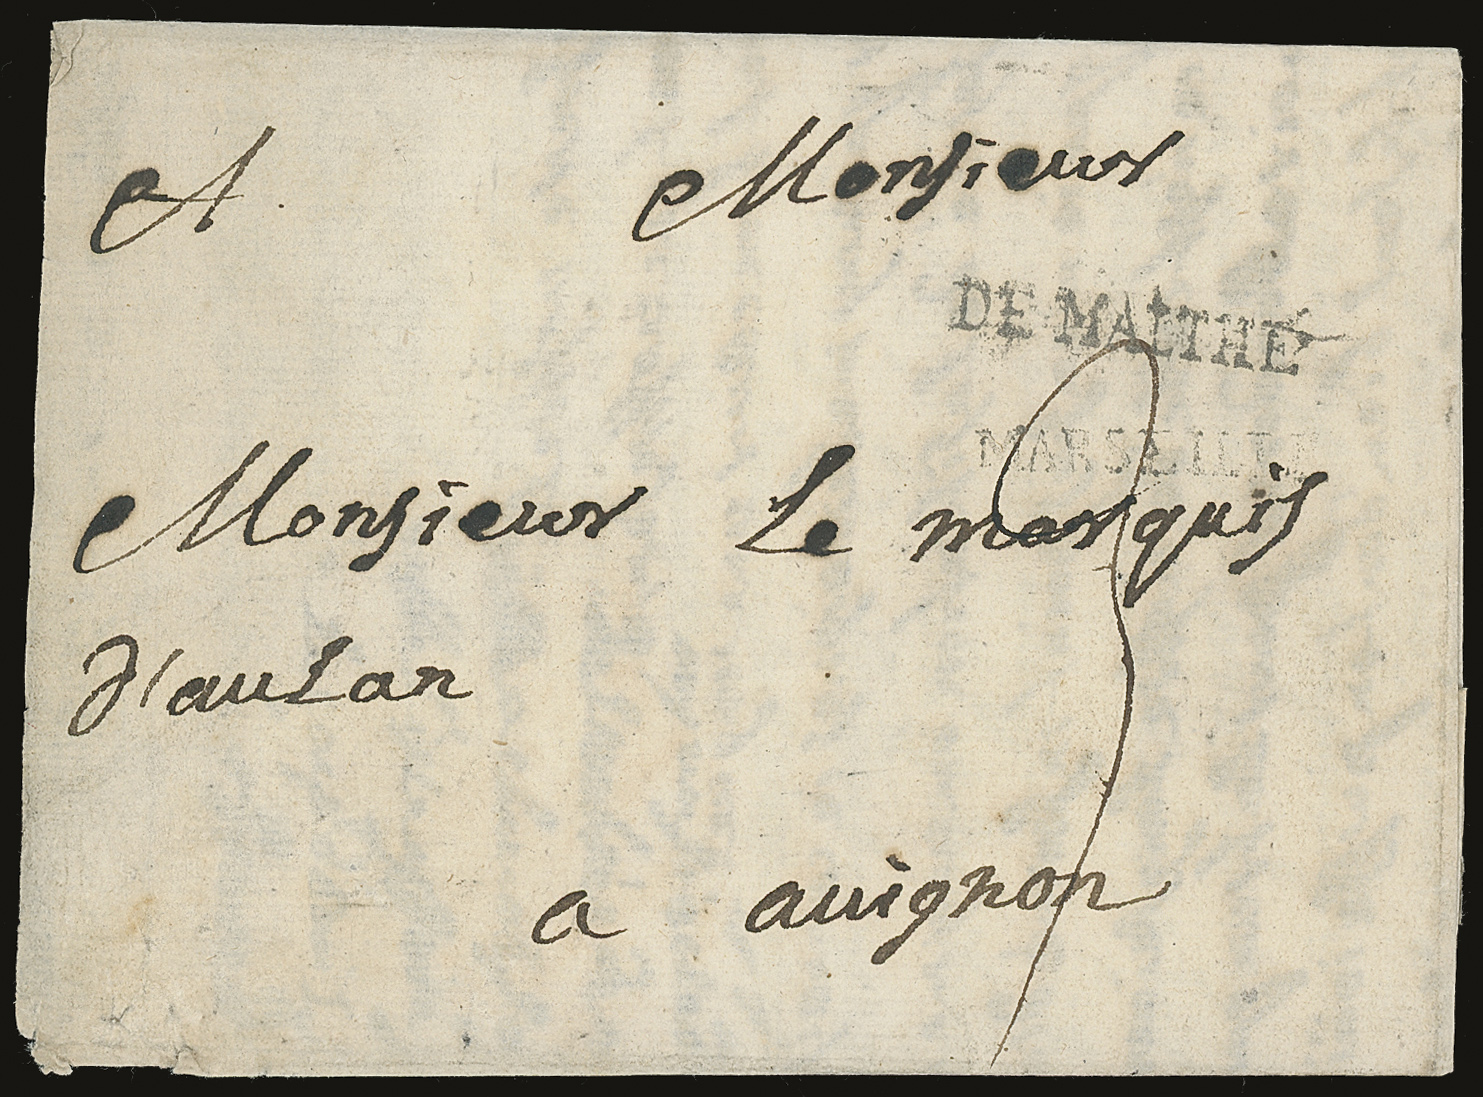 A Monsieur
DE MALTHE
MARSEILLE
Monsieur Le marquis
d'aulan
a auignon
9